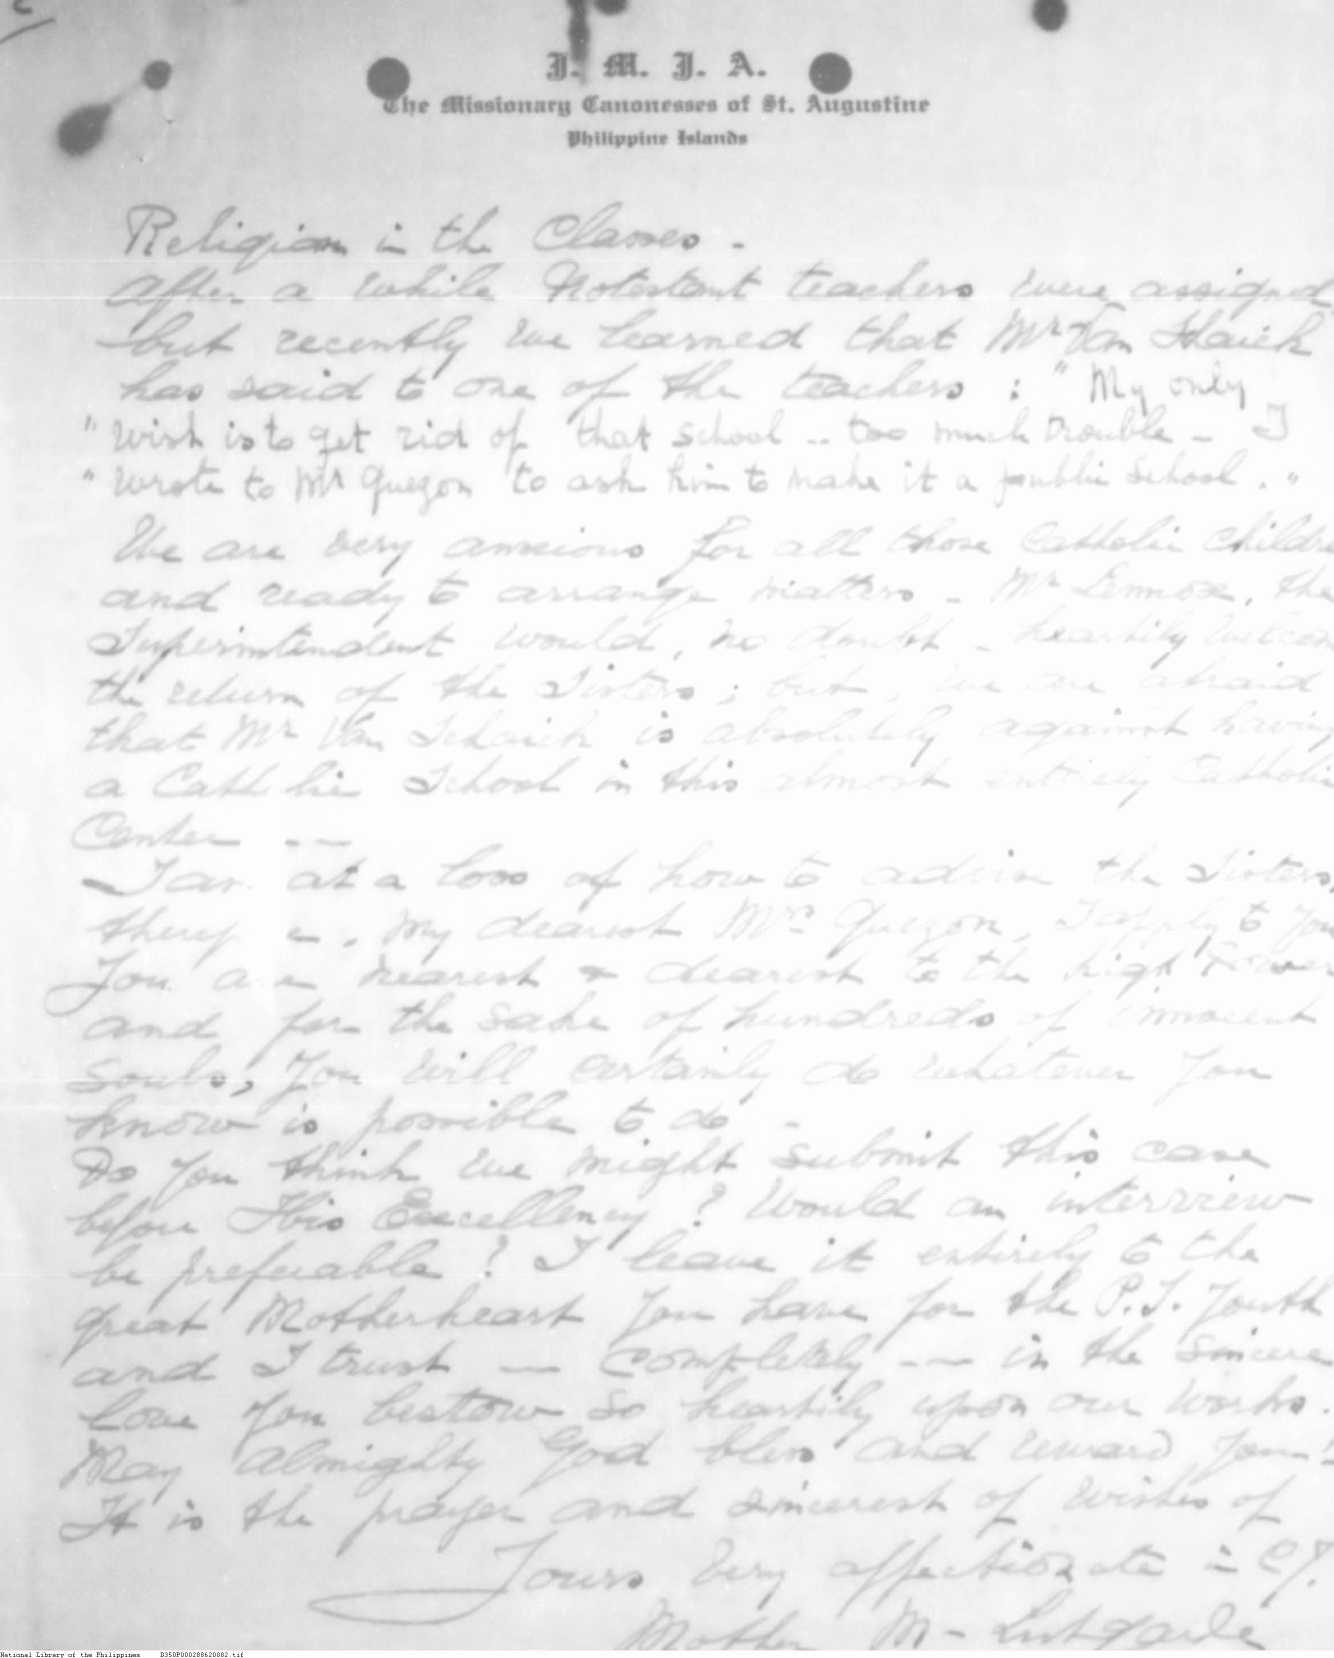 J. M. J. A.
The Missionary Canonesses of St. Augustine
Philippine Islands
Religion in the Classes -
After a while Protestant teachers were assigned
but recently we learned that Mr Van Schaick
has said to one of the teachers : " My only
" wish is to get rid of that school -- too much trouble - I
" wrote to Mr Quezon to ask him to make it a public school . "
We are very anxious for all those Catholic childre
and ready to arrange matters - Mr Lennox, the
Superintendent would, no doubt - heartily welcom
the return of the Sisters ; but , we are afraid
that Mr Van Schaick is absolutely against having
a Catholic School in this almost entirely Catholic
Center - -
I am at a loss of how to advise the Sisters,
there , My dearest Mrs Quezon, I apply to you
You are nearest & dearest to the high Power
and for the sake of hundreds of innocent
souls, you will certainly do whatever you
know is possible to do -
Do you think we might submit this case
before His Excellency ? Would an interview
be preferable ? I leave it entirely to the
great Motherheart you have for the P.I. Youth
and I trust — completely -- in the sincere
love you bestow so heartily upon our works.
May Almighty God bless and reward you !
It is the prayer and sincerest of wishes of
Yours very affectionate in C.J.
Mother M - Lutgarde
National Library of the Philippines D350P000288620882.tif